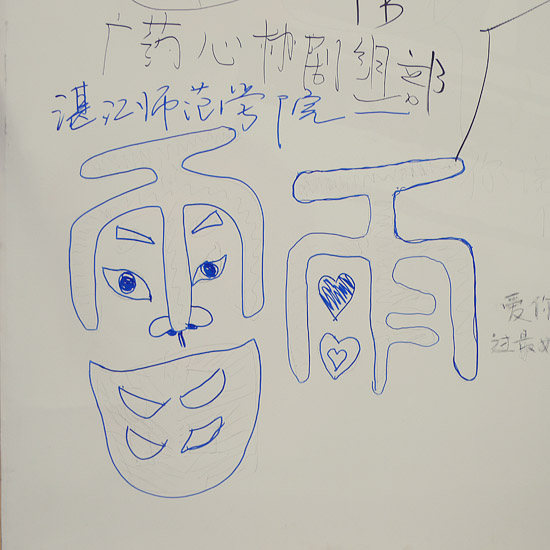 广药心协剧组部
湛江师范学院
雷雨
爱你
过最